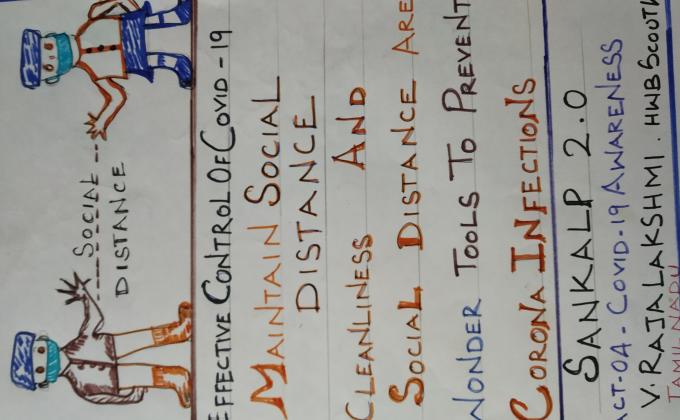 SOCIAL
DISTANCE
EFFECTIVE CONTROL OF COVID-19
MAINTAIN SOCIAL
DISTANCE
CLEANLINESS AND
SOCIAL DISTANCE ARE
WONDER TOOLS TO PREVENT
CORONA INFECTIONS
SANKALP 2.0
CT-04 - COVID-19 AWARENESS
V. RAJALAKSHMI . HWB SCOUTH
TAMIL NADU